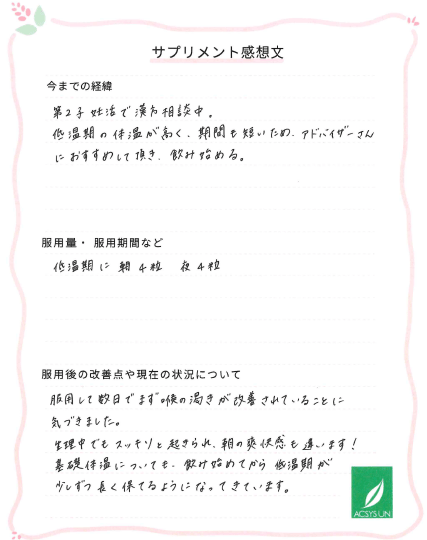 サプリメント感想文
今までの経緯
第2子妊活で漢方相談中。
低温期の体温が高く、期間も短いため、アドバイザーさん
におすすめして頂き、飲み始める。
服用量・服用期間など
低温期に 朝4粒 夜4粒
服用後の改善点や現在の状況について
服用して数日でまず喉の渇きが改善されていることに
気づきました。
生理中でもスッキリと起きられ、朝の爽快感も違います!
基礎体温についても、飲み始めてから低温期が
少しずつ長く保てるようになってきています。
ACSYSUN